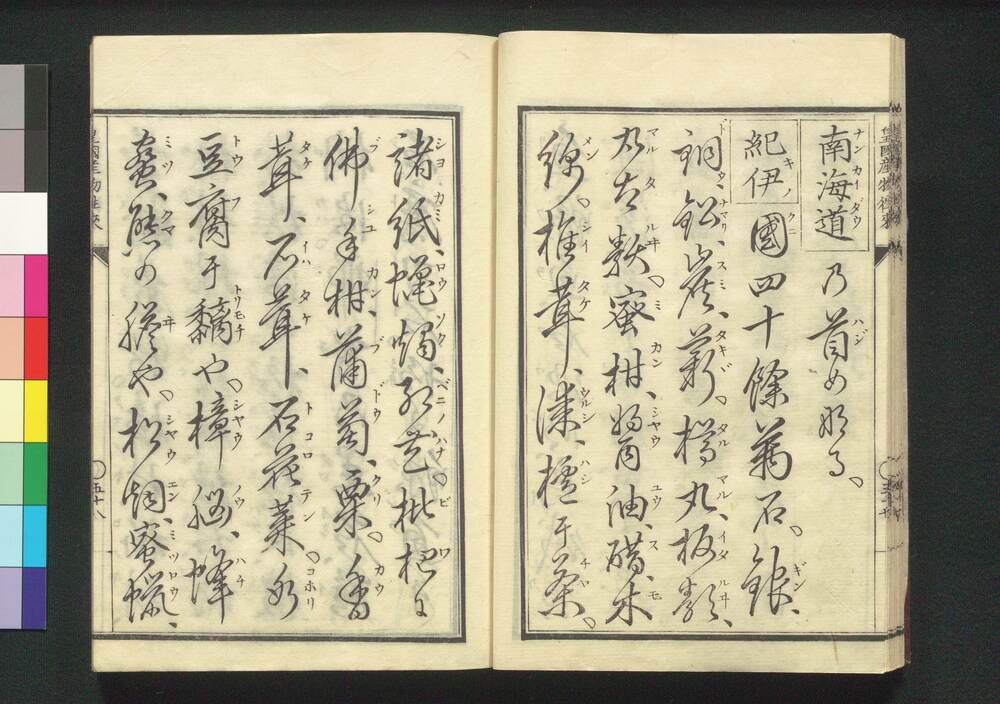 南海道乃首め場る、
紀伊國四十條菊石、銀、
銅、鉛、炭、薪、樽丸、板類、
丸太類、蜜柑、醤油、醋、木
綿、椎茸、漆、櫨于茶、
諸紙、蠟燭、紅花、枇杷に
佛手柑、葡萄、栗、香
茸、石茸、石花菜、氷
豆腐于黐や、樟脳、蜂
蜜、熊の膽や、松烟、蜜蠟、
皇國産物往来
五十八